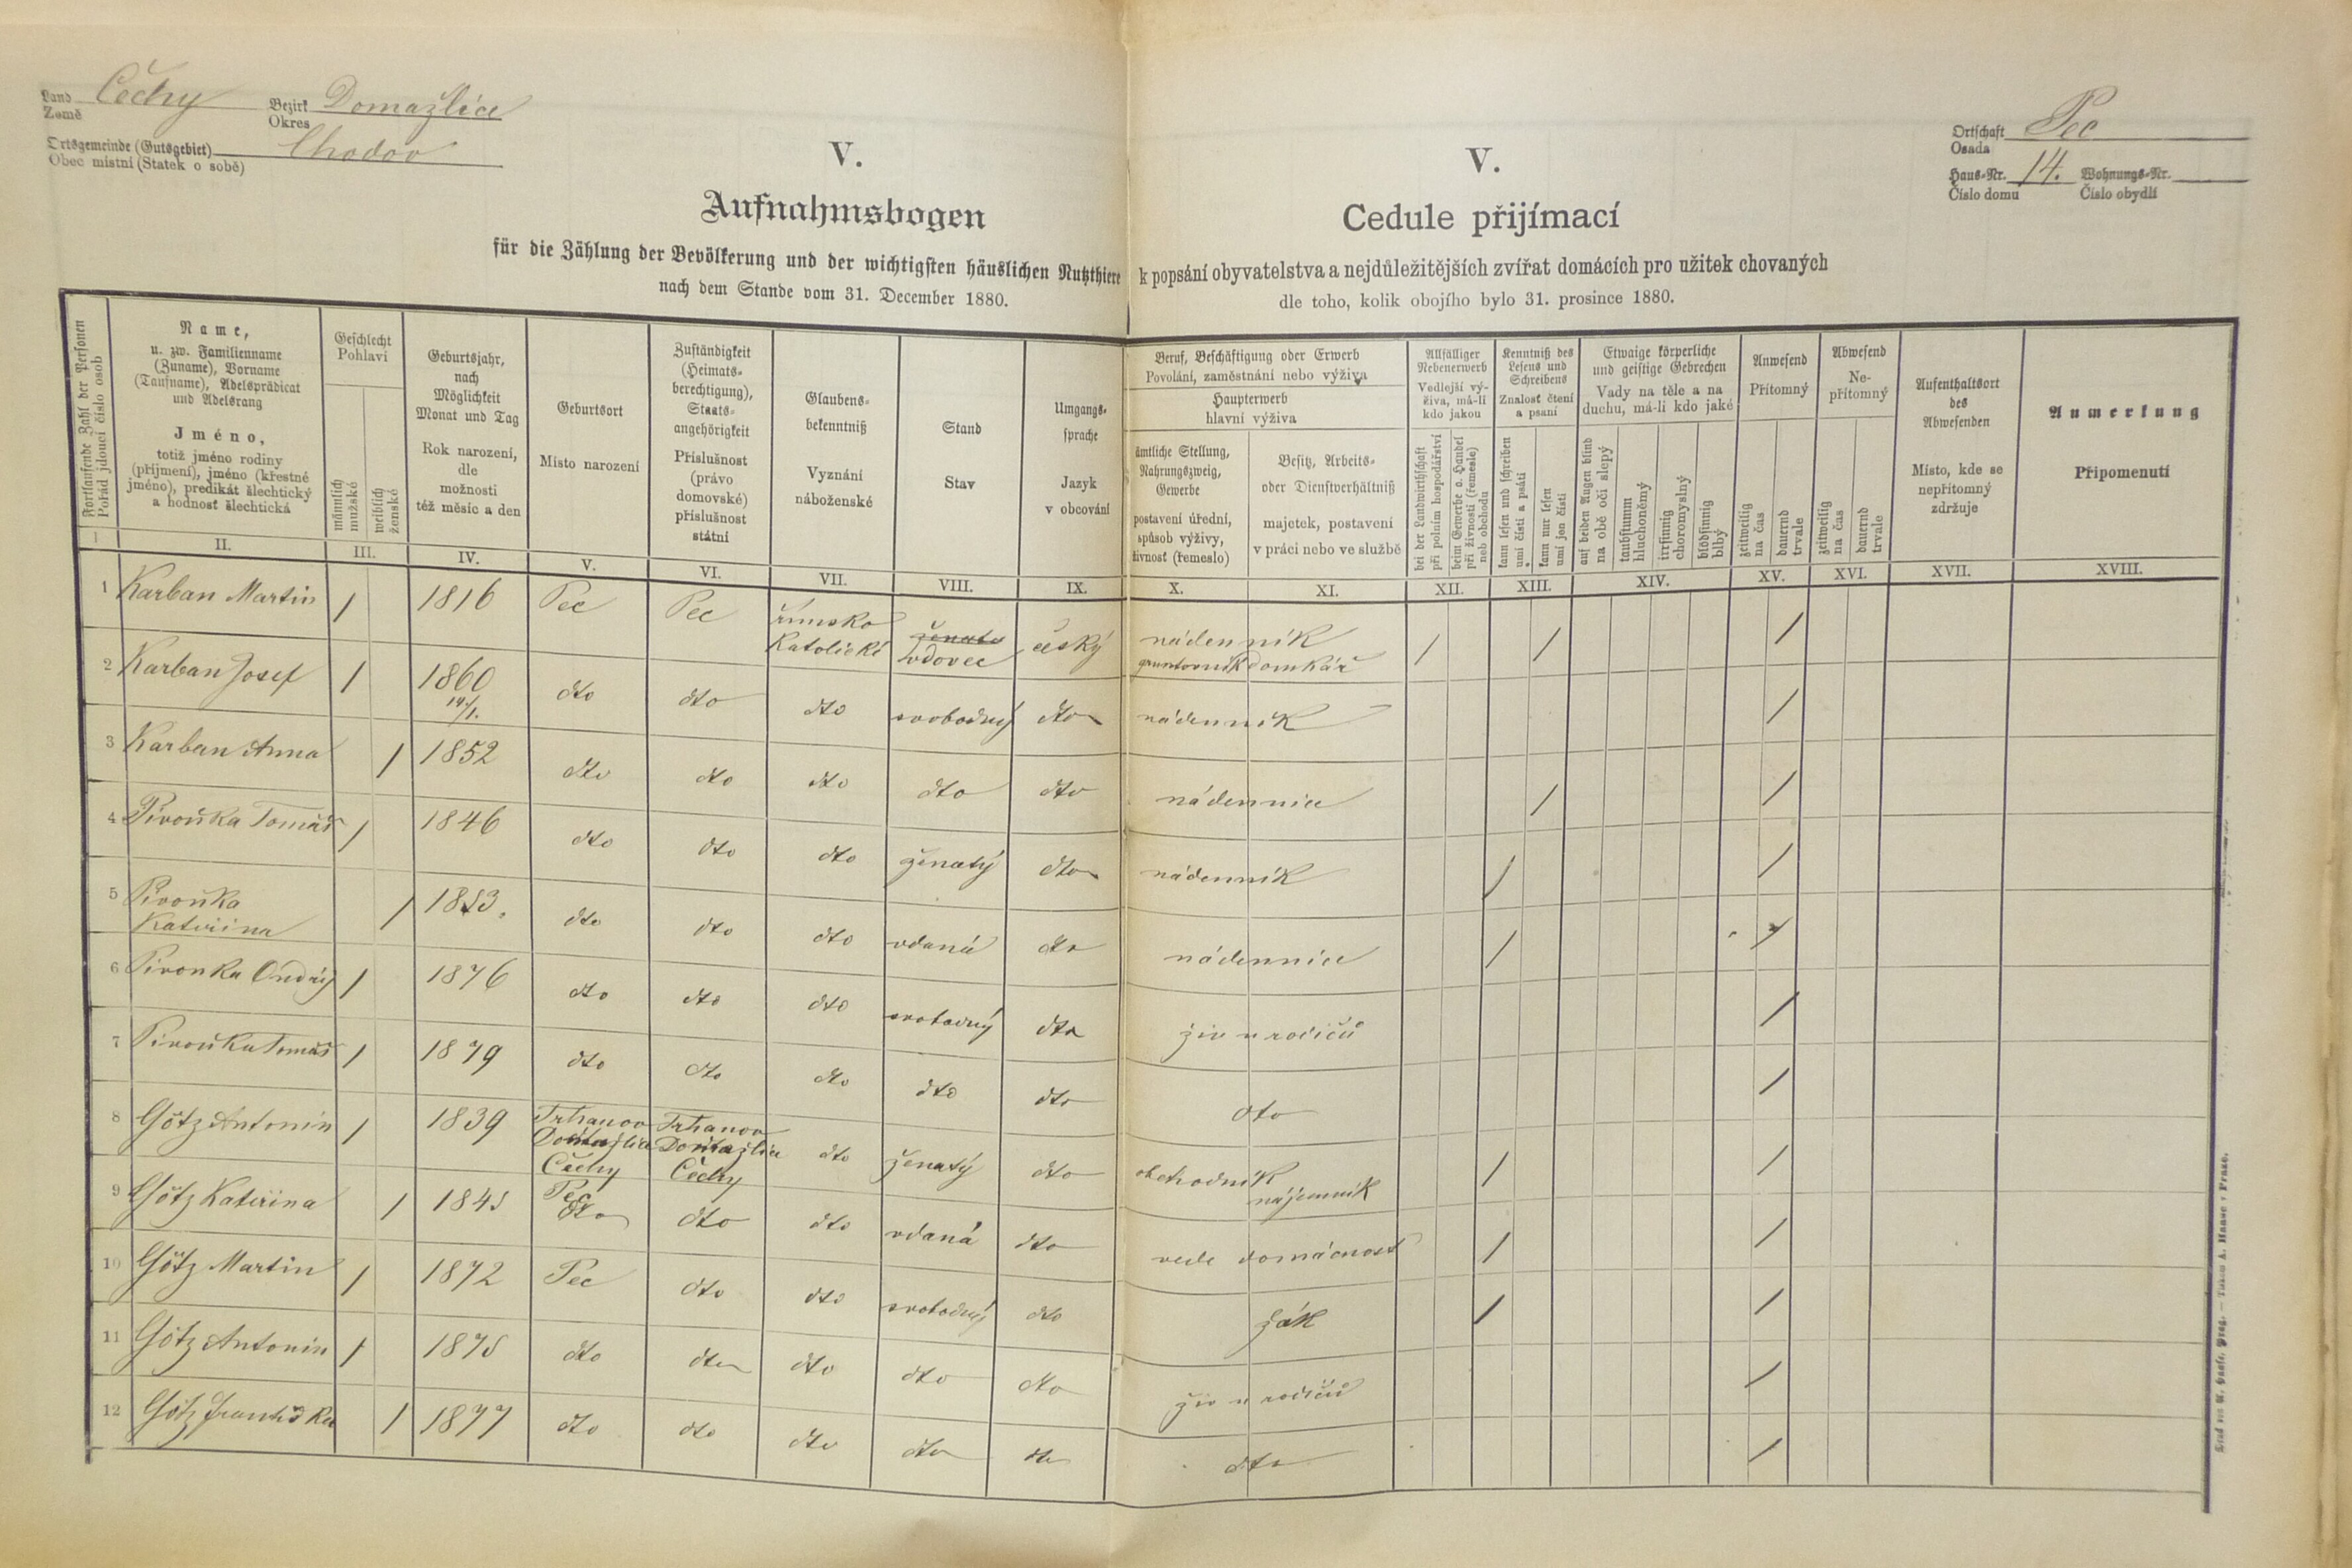 Land Čechy Bezirk Domažlice
Země Okres
Ortsgemeinde (Gutsgebiet) Chodov
Obec místní (Statek o sobě)
Ortschaft Pec
Osada
Haus-Nr. 14. Wohnungs-Nr.
Číslo domu Číslo obydlí
V.
Aufnahmsbogen
für die Zählung der Bevölkerung und der wichtigsten häuslichen Nutzthiere
nach dem Stande vom 31. December 1880.
V.
Cedule přijímací
k popsání obyvatelstva a nejdůležitějších zvířat domácích pro užitek chovaných
dle toho, kolik obojího bylo 31. prosince 1880.
Fortlaufende Zahl der Personen
Pořád jdoucí číslo osob
Name,
u. zw. Familienname
(Zuname), Vorname
(Taufname), Adelsprädicat
und Adelsrang
Jméno,
totiž jméno rodiny
(příjmení), jméno (křestné
jméno), predikát šlechtický
a hodnosť šlechtická
Geschlecht
Pohlaví
männlich
mužské
weiblich
ženské
Geburtsjahr,
nach
Möglichkeit
Monat und Tag
Rok narození,
dle
možnosti
též měsíc a den
Geburtsort
Místo narození
Zuständigkeit
(Heimats-
berechtigung),
Staats-
angehörigkeit
Příslušnost
(právo
domovské)
příslušnost
státní
Glaubens-
bekenntniß
Vyznání
náboženské
Stand
Stav
Umgangs-
sprache
Jazyk
v obcování
Beruf, Beschäftigung oder Erwerb
Povolání, zaměstnání nebo výživa
Haupterwerb
hlavní výživa
ämtliche Stellung,
Nahrungszweig,
Gewerbe
postavení úřední,
spůsob výživy,
živnost (řemeslo)
Besitz, Arbeits-
oder Dienstverhältniß
majetek, postavení
v práci nebo ve službě
Allfälliger
Nebenerwerb
Vedlejší vý-
živa, má-li
kdo jakou
bei der Landwirthschaft
při polním hospodářství
beim Gewerbe o. Handel
při živnosti (řemesle)
neb obchodu
Kenntniß des
Lesens und
Schreibens
Znalosť čtení
a psaní
kann lesen und schreiben
umí čísti a psáti
kann nur lesen
umí jen čísti
Etwaige körperliche
und geistige Gebrechen
Vady na těle a na
duchu, má-li kdo jaké
auf beiden Augen blind
na obě oči slepý
taubstumm
hluchoněmý
irrsinnig
choromyslný
blödsinnig
blbý
Anwesend
Přítomný
zeitweilig
na čas
dauernd
trvale
Abwesend
Ne-
přítomný
zeitweilig
na čas
dauernd
trvale
Aufenthaltsort
des
Abwesenden
Místo, kde se
nepřítomný
zdržuje
Anmerkung
Připomenutí
I II. III. IV. V. VI. VII. VIII. IX. X. XI. XII. XIII. XIV. XV. XVI. XVII. XVIII.
1 Karban Martin / 1816 Pec Pec římsko katolické ženatý vdovec český nádenník gruntovník domkář / / /
2 Karban Josef / 1860 14/1. dto dto dto svobodný dto nádenník /
3 Karban Anna / 1852 dto dto dto dto dto nádennice / /
4 Pivoňka Tomáš / 1846 dto dto dto ženatý dto nádenník / /
5 Pivoňka Kateřina / 1853. dto dto dto vdaná dto nádennice / /
6 Pivoňka Ondřej / 1876 dto dto dto svobodný dto živ u rodičů /
7 Pivoňka Tomáš / 1879 dto dto dto dto dto dto /
8 Götz Antonin / 1839 Trhanov Domažlice Čechy Trhanov Domažlice Čechy dto ženatý dto obchodník nájemník / /
9 Götz Kateřina / 1845 Pec dto dto dto vdaná dto vede domácnost / /
10 Götz Martin / 1872 Pec dto dto svobodný dto žák / /
11 Götz Antonin / 1875 dto dto dto dto dto živ u rodičů /
12 Götz Františka / 1877 dto dto dto dto dto dto /
Druck von A. Haase, Prag. — Tiskem A. Haase v Praze.